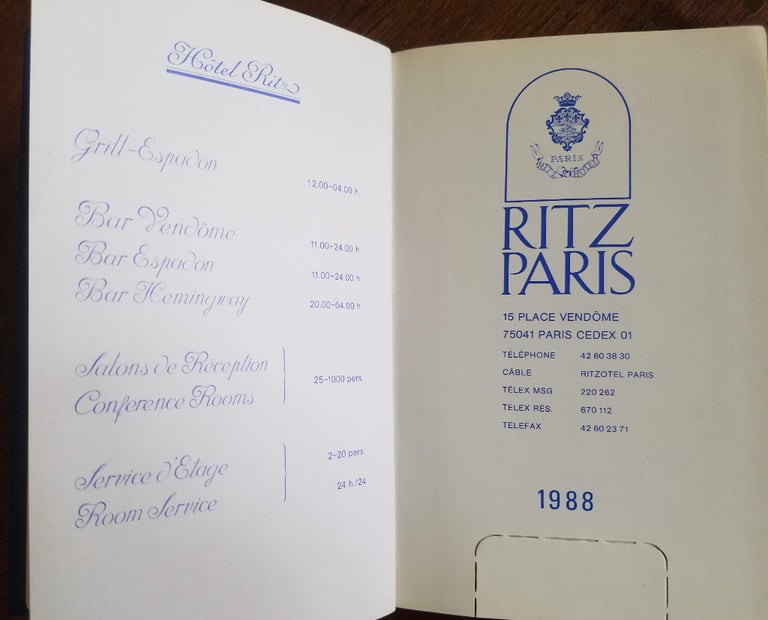 Hôtel Ritz
Grill-Espadon
12.00-04.00 h.
Bar Vendôme 11.00-24.00 h.
Bar Espadon 11.00-24.00 h.
Bar Hemingway 20.00-04.00 h.
Salons de Réception
Conference Rooms
25-1000 pers.
Service d'Etage
Room Service
2-20 pers.
24 h./24
PARIS
RITZ HOTEL
RITZ
PARIS
15 PLACE VENDÔME
75041 PARIS CEDEX 01
TÉLÉPHONE 42 60 38 30
CÂBLE RITZOTEL PARIS
TÉLEX MSG 220 262
TÉLEX RÉS. 670 112
TELEFAX 42 60 23 71
1988